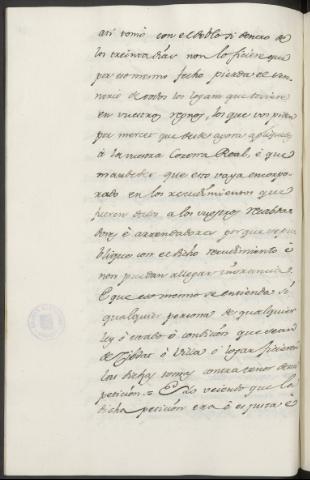 asi tomó con el doblo si dentro de
los treinta dias non lo ficiere que
por eso mismo fecho pierda el sen-
norio de todos los logares que toviere
en vuestros regnos, los que vos piden
por merced que desde agora apliquedes
á la vuestra Corona Real, é que
mandedes que esto vaya encorpo-
rado en los recudimientos que
fueren dados a los vuestros recabda-
dores é arrendadores porque se pu-
bliquen con el dicho recudimiento é
non puedan allegar innorancia
E que eso mesmo se entienda si
qualquier persona de qualquier
ley ó estado ó condición que sean
de Cibdat ó Villa ó logar ficieren
las dichas tomas contra tenor de esta
petición. = E Yo veiendo que la
dicha petición era é es justa é